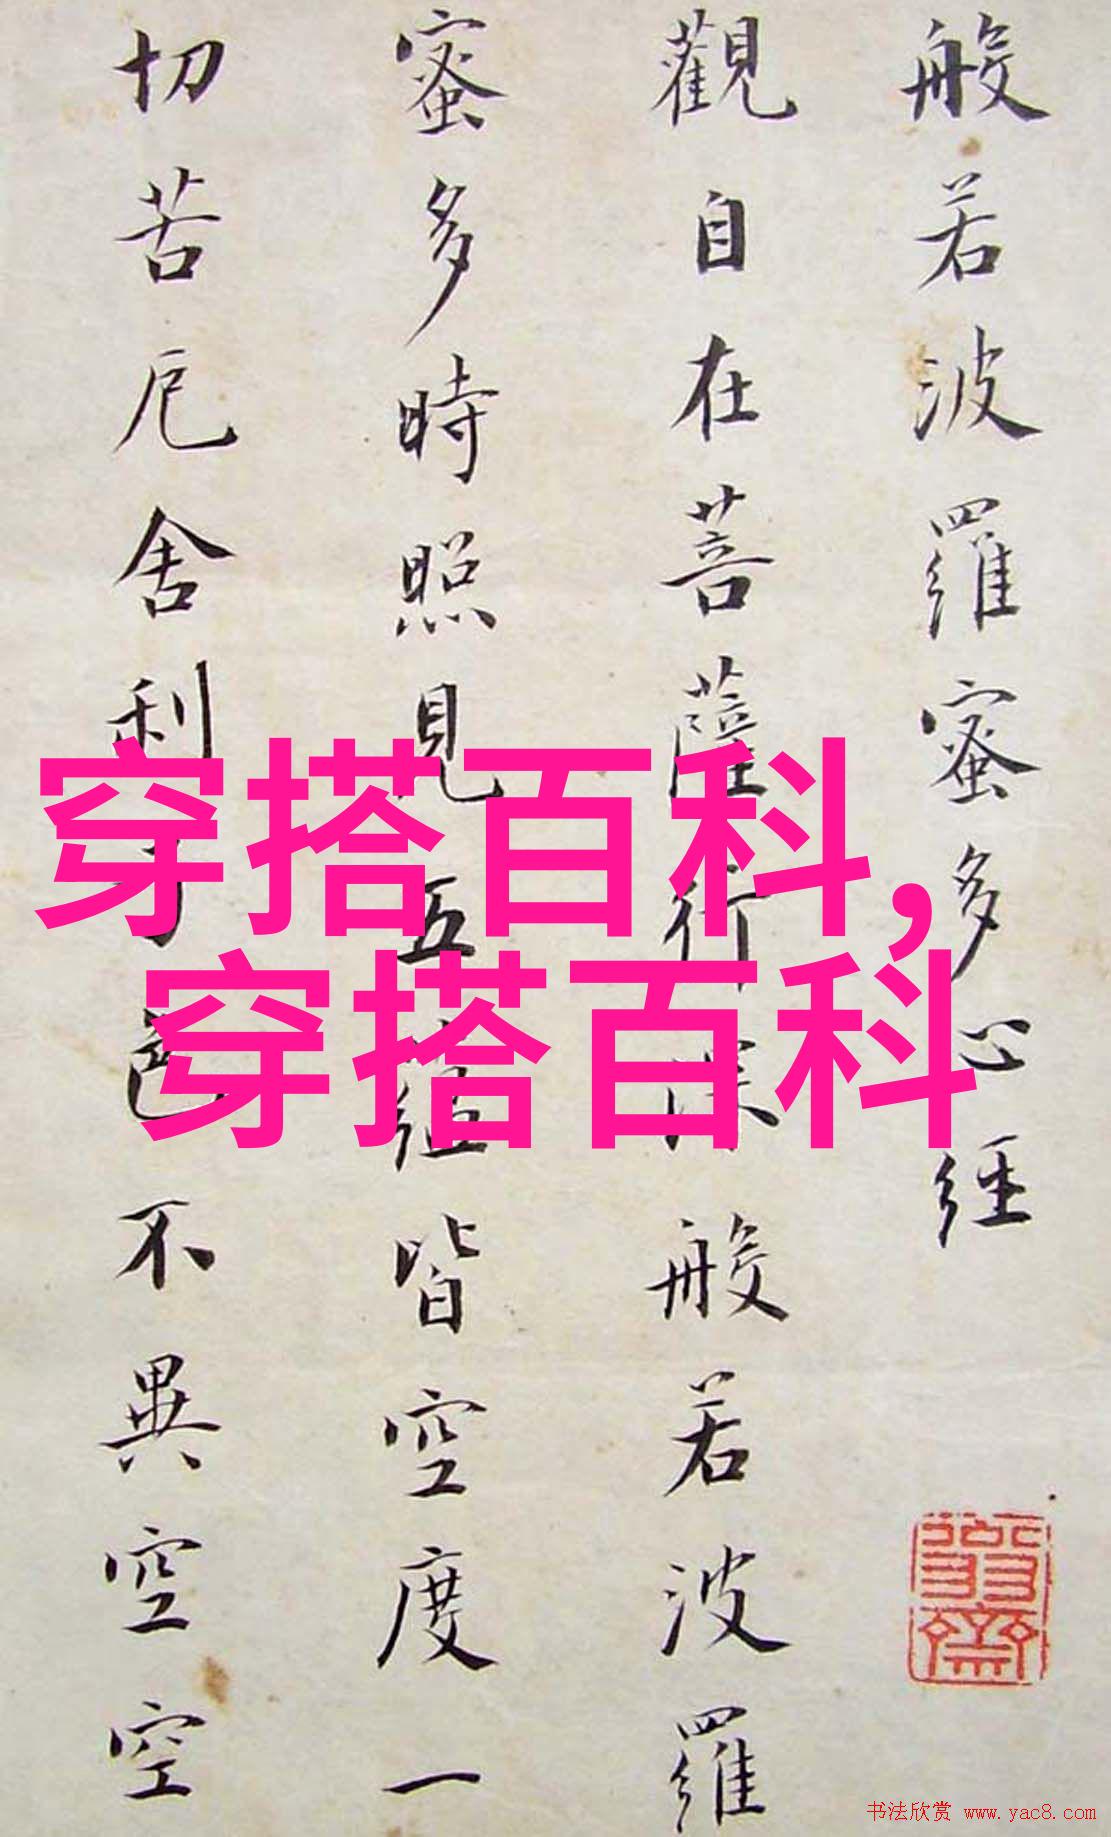 般若波羅蜜多心經
觀自在菩薩行深般若波羅
蜜多時照見五蘊皆空度一
切苦厄舍利子色不異空空
穿搭百科,
穿搭百科
书法欣赏 www.yac8.com